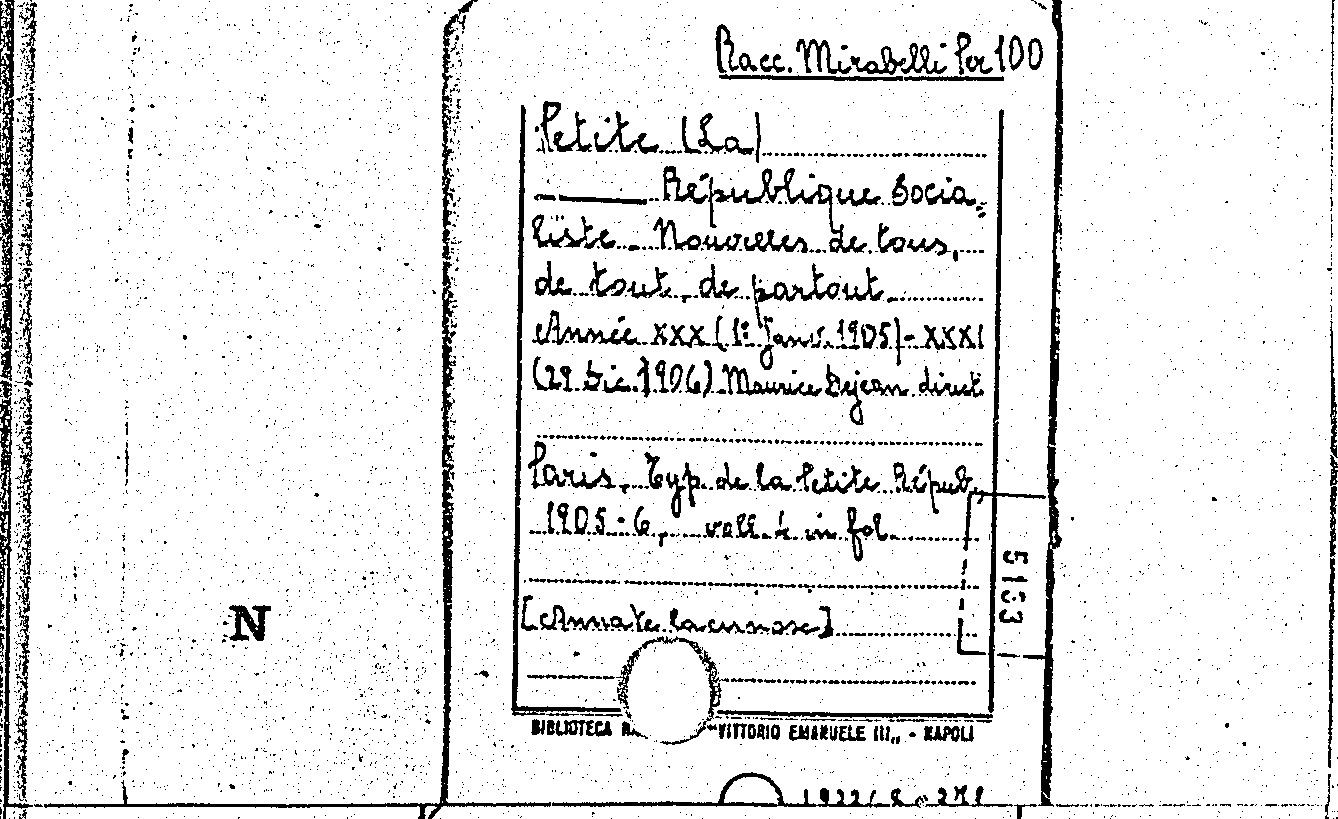 Racc. Mirabelli Per 100
Petite (La)
——— République Socia=
liste. Nouvelles de tous,
de tout, de partout.
Année XXX (1e janv. 1905) - XXXI
(29 dic. 1906) Maurice Dejean direct.
Paris, Typ. de la Petite Répub.,
1905-6, voll. 4 in fol.
[Annate lacunose]
5133
N
BIBLIOTECA "VITTORIO EMANUELE III„ - NAPOLI